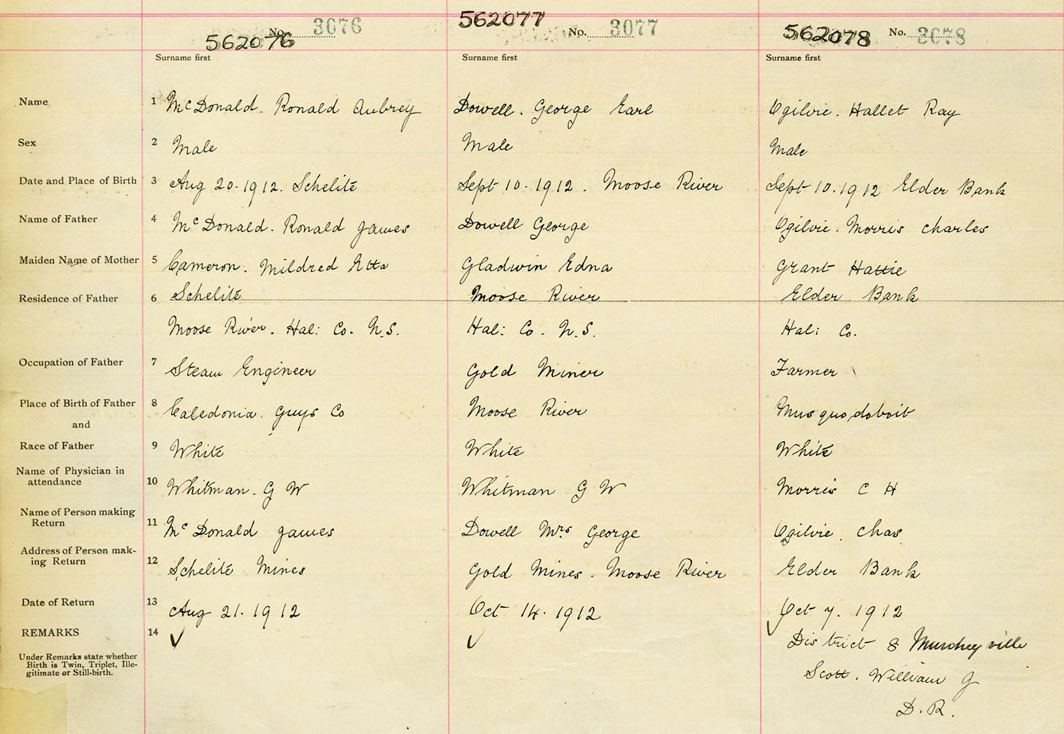 562076 No. 3076 562077 No. 3077 562078 No. 3078
Surname first Surname first Surname first
Name 1 McDonald. Ronald Aubrey Dowell. George Earl Ogilvie. Hallet Ray
Sex 2 Male Male Male
Date and Place of Birth 3 Aug 20.1912. Schelite Sept 10.1912. Moose River Sept 10.1912 Elder Bank
Name of Father 4 McDonald. Ronald James Dowell George Ogilvie. Morris Charles
Maiden Name of Mother 5 Cameron. Mildred Etta Gladwin Edna Grant Hattie
Residence of Father 6 Schelite Moose River Elder Bank
Moose River. Hal: Co. N.S. Hal: Co. N.S. Hal: Co.
Occupation of Father 7 Steam Engineer Gold Miner Farmer
Place of Birth of Father 8 Caledonia Guys Co Moose River Musquodoboit
and
Race of Father 9 White White White
Name of Physician in
attendance 10 Whitman. G W Whitman G W Morris C H
Name of Person making
Return 11 McDonald James Dowell Mrs George Ogilvie Chas
Address of Person mak-
ing Return 12 Schelite Mines Gold Mines. Moose River Elder Bank
Date of Return 13 Aug 21.1912 Oct 14.1912 Oct 7. 1912
REMARKS 14 ✓ ✓ ✓ District 8
Under Remarks state whether
Birth is Twin, Triplet, Ille-
gitimate or Still-birth.
Scott. William G
D.R.